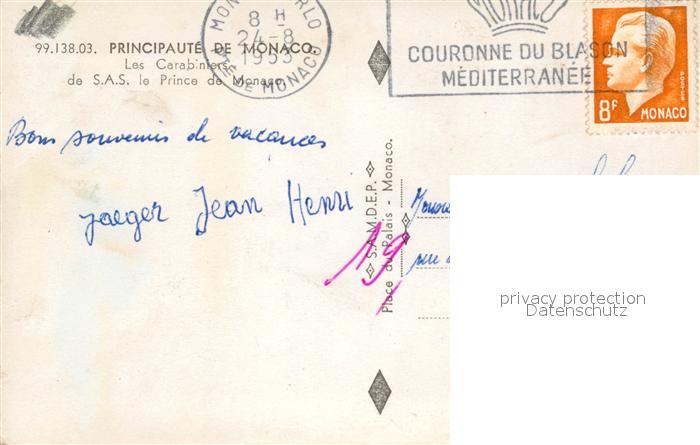 99.138.03. PRINCIPAUTÉ DE MONACO.
Les Carabiniers
de S.A.S. le Prince de Monaco.
8 H
24-8
1953
DE MONACO
MONACO
COURONNE DU BLASON
MÉDITERRANÉE
8F MONACO
Bons souvenirs de vacances
Jaeger Jean Henri
S.A.M.D.E.P.
Place du Palais - Monaco.
19
rue
privacy protection
Datenschutz